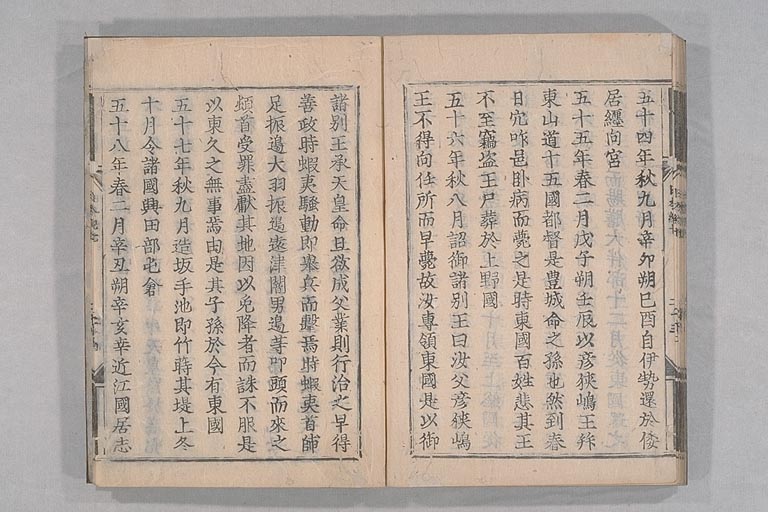 五十四年秋九月辛卯朔己酉自伊勢還於倭
居纏向宮
五十五年春二月戊子朔壬辰以彦狹嶋王拜
東山道十五國都督是豊城命之孫也然到春
日穴咋邑臥病而薨之是時東國百姓悲其王
不至竊盗王尸葬於上野國
五十六年秋八月詔御諸別王曰汝父彦狹嶋
王不得向任所而早薨故汝專領東國是以御
諸別王承天皇命且欲成父業則行治之早得
善政時蝦夷騷動即擧兵而擊焉時蝦夷首帥
足振邊大羽振邊遠津闇男邊等叩頭而來之
頓首受罪盡獻其地因以免降者而誅不服是
以東久之無事焉由是其子孫於今有東國
五十七年秋九月造坂手池即竹蒔其堤上冬
十月令諸國興田部屯倉
五十八年春二月辛丑朔辛亥幸近江國居志